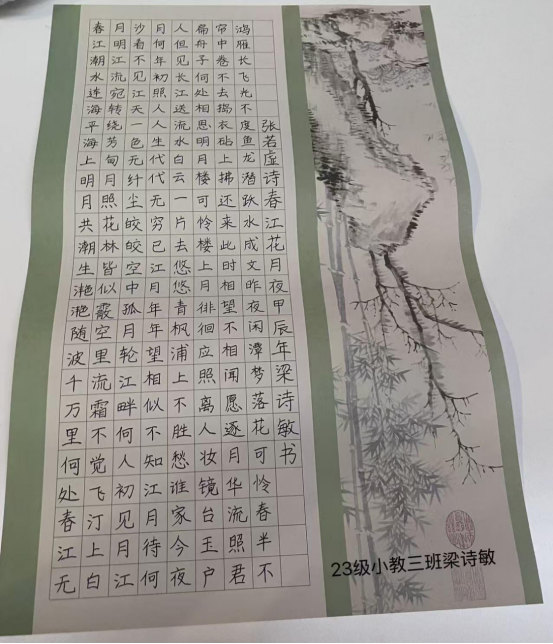 春江潮水连海平海上明月共潮生滟滟随波千万里何处春江无
月明江流宛转绕芳甸月照花林皆似霰空里流霜不觉飞汀上白
沙看不见江天一色无纤尘皎皎空中孤月轮江畔何人初见月江
月何年初照人人生代代无穷已江月年年望相似不知江月待何
人但见长江送流水白云一片去悠悠青枫浦上不胜愁谁家今夜
扁舟子何处相思明月楼可怜楼上月徘徊应照离人妆镜台玉户
帘中卷不去捣衣砧上拂还来此时相望不相闻愿逐月华流照君
鸿雁长飞光不度鱼龙潜跃水成文昨夜闲潭梦落花可怜春半不
张若虚诗春江花月夜甲辰年梁诗敏书
23级小教三班梁诗敏